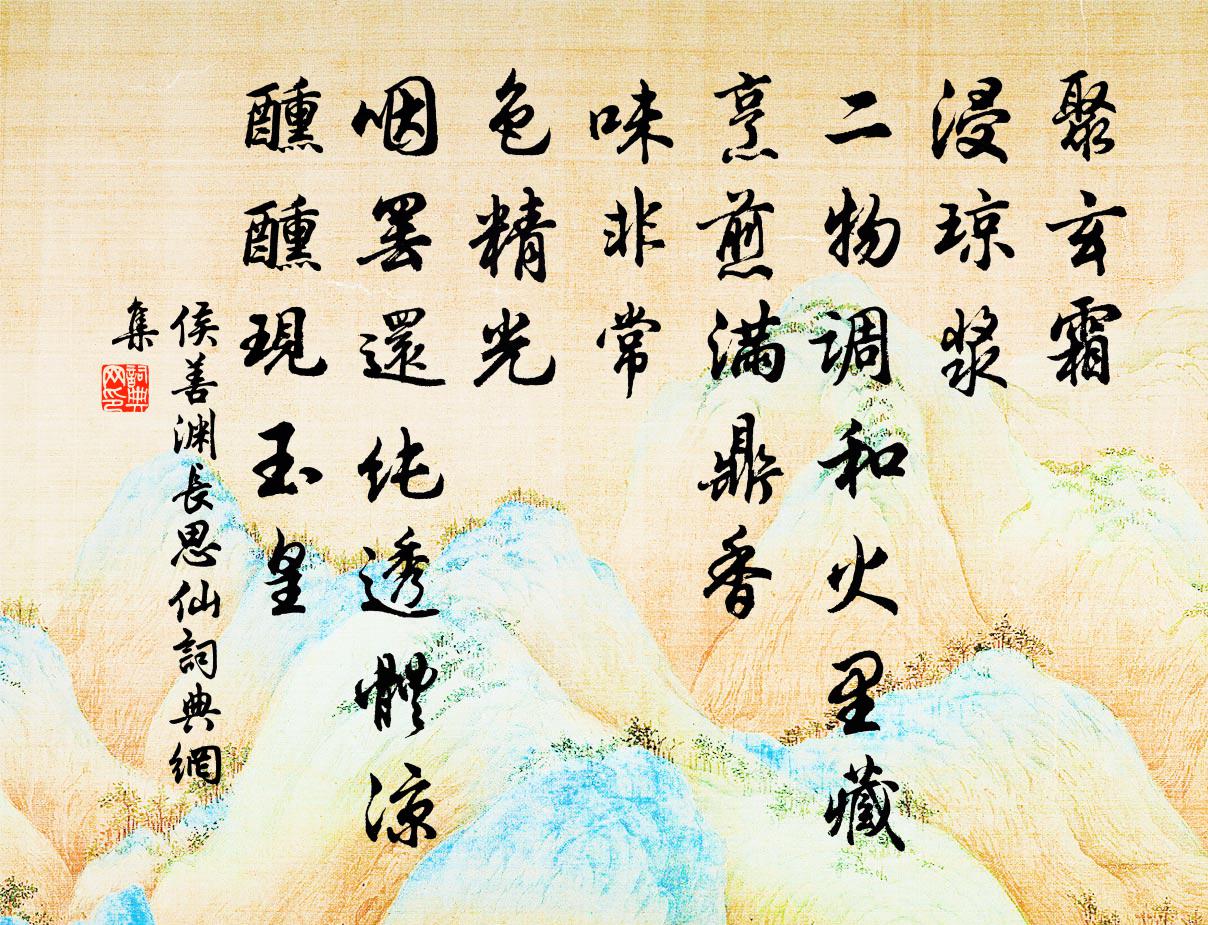 聚玄霜
浸琼漿
二物调和火里藏
烹煎满鼎香
味非常
色精光
咽罢還纯透體凉
醺醺現玉皇
侯善渊長思仙詞典網
集
詞典
网印